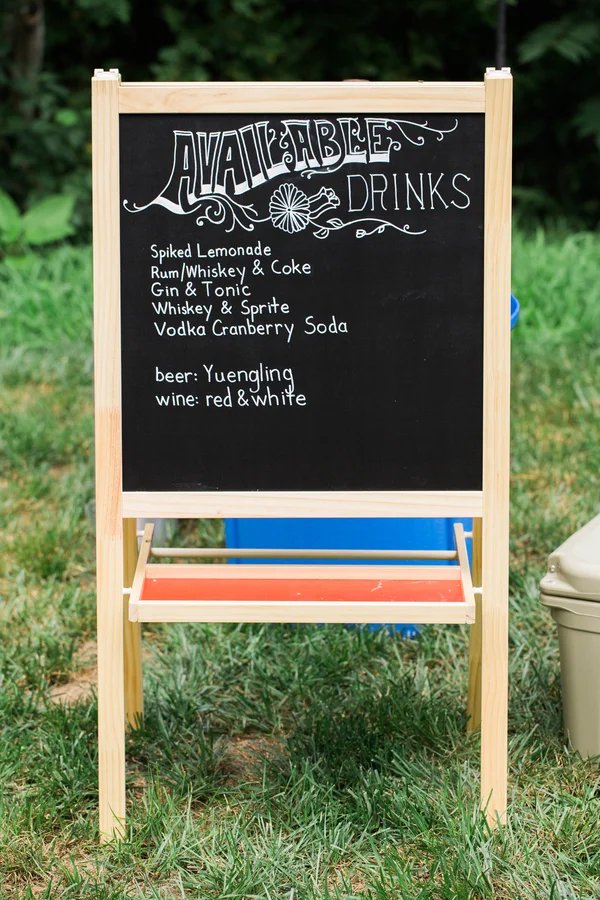 AVAILABLE
DRINKS
Spiked Lemonade
Rum/Whiskey & Coke
Gin & Tonic
Whiskey & Sprite
Vodka Cranberry Soda
beer: Yuengling
wine: red & white